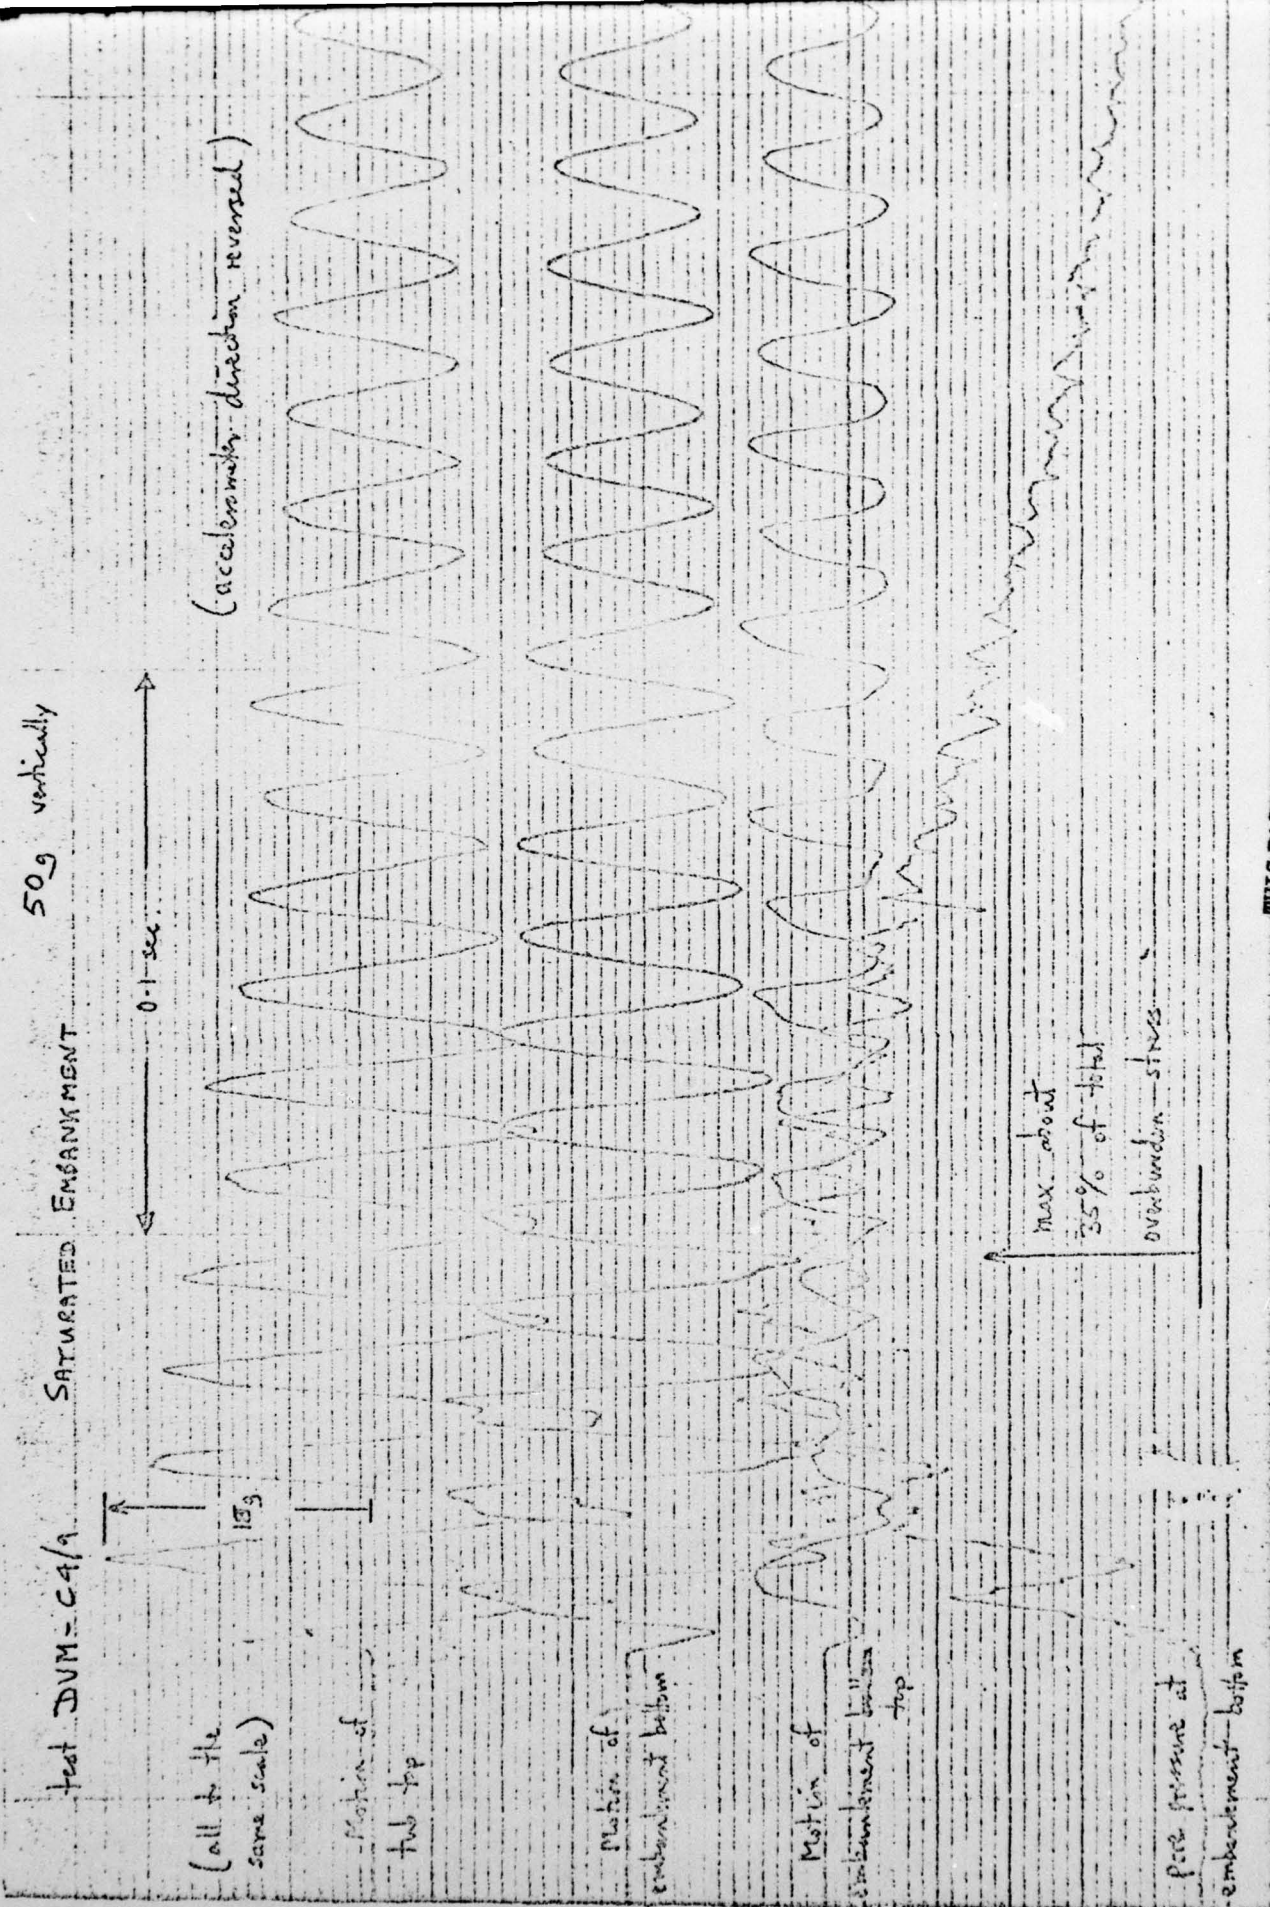 test DVM-C4/9 SATURATED EMBANKMENT 50g vertically
0.1 sec.
(all to the
same scale)
(accelerometer direction reversed)
18g
Motion of
tub top
Motion of
embankment bottom
Motion of
embankment
top
max about
35% of total
overburden stress
Pore pressure at
embankment bottom